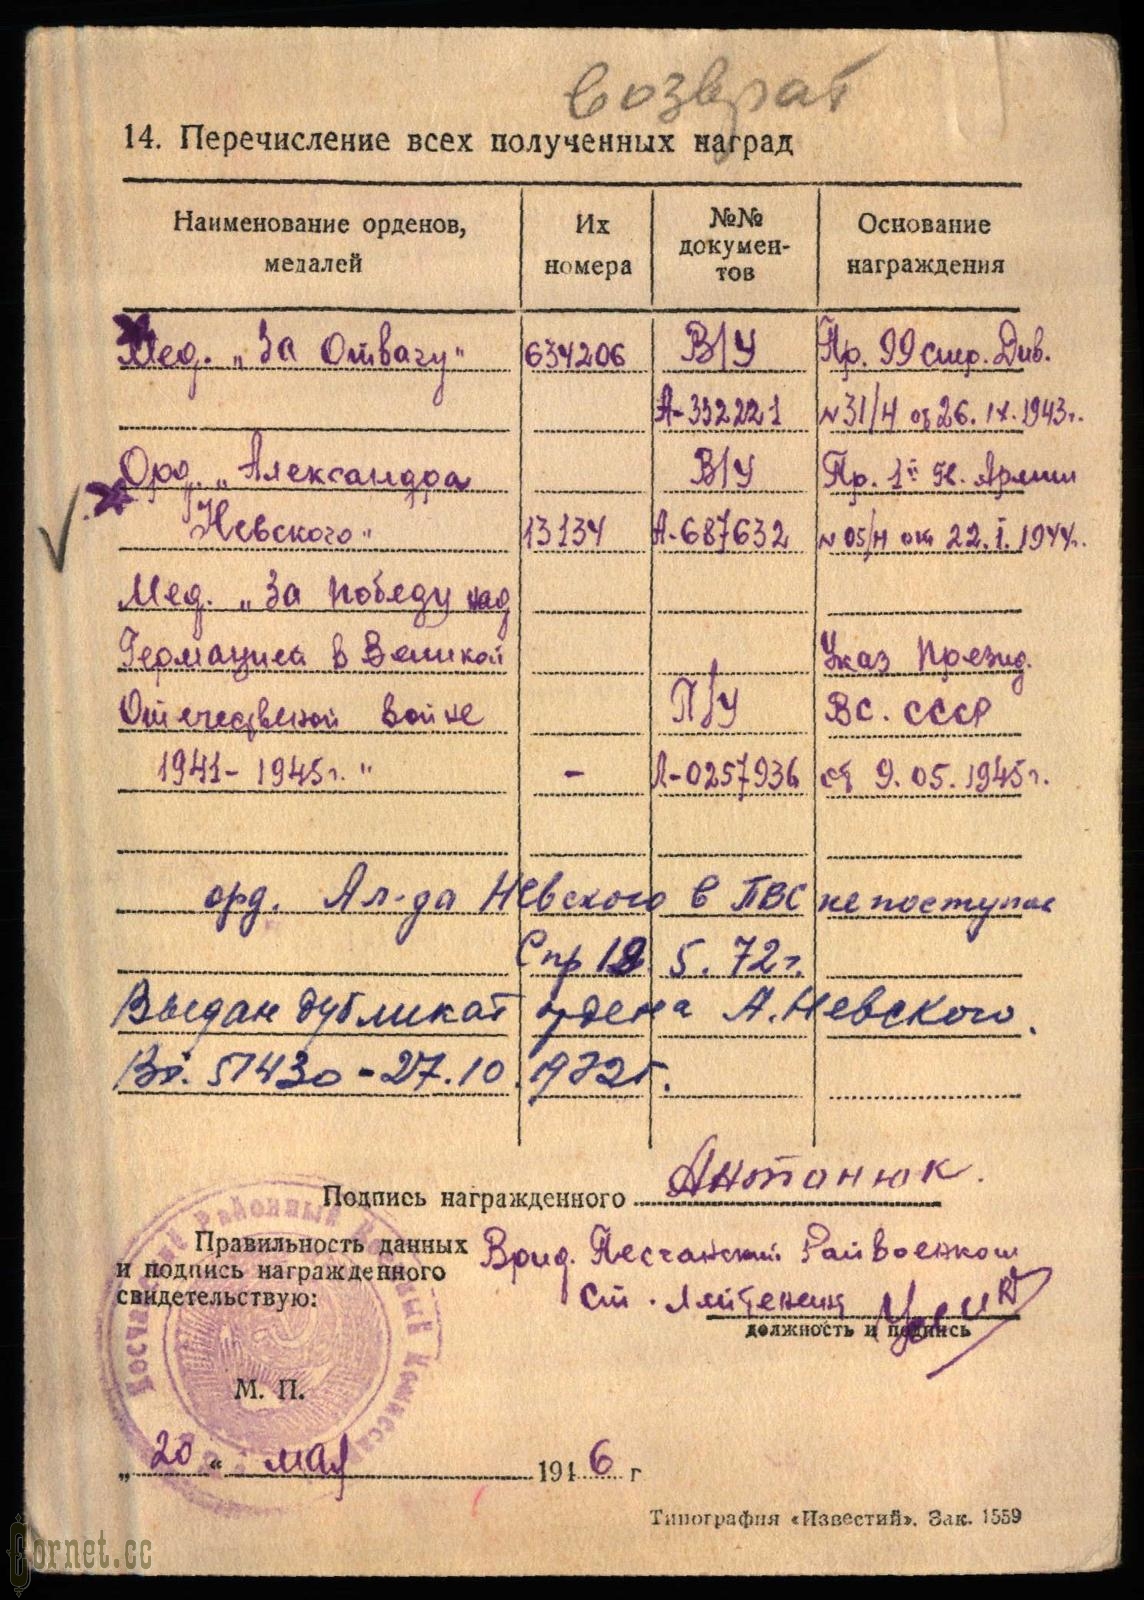 возврат
14. Перечисление всех полученных наград
Наименование орденов, медалей
Их номера
№№ документов
Основание награждения
Мед. „За Отвагу" 634206 В/У Пр. 99 стр. Див.
А-332221 №31/н от 26. IX. 1943г.
Орд. „Александра В/У Пр. 1й Армии
Невского" 13134 А-687632 №05/н от 22. I. 1944г.
Мед. „За победу над
Германией в Великой Указ Презид.
Отечественной войне П/У ВС. СССР
1941-1945г." - Л-0257936 от 9. 05. 1945г.
орд. Ал-да Невского в ПВС не поступал
Спр 5. 72г.
Выдан дубликат ордена А. Невского.
Вх. 51430 - 27.10.1972г.
Подпись награжденного Антонюк.
Правильность данных
и подпись награжденного
свидетельствую:
Врид. Песчанский Райвоенком
Ст. Лейтенант
должность и подпись
М. П.
„20" мая 1946 г
Типография «Известий». Зак. 1559
Районный
Cornet.cc